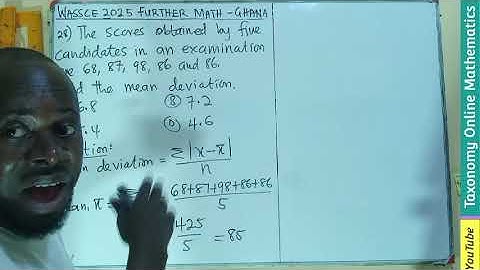 WASSCE 2025 FURTHER MATH - GHANA
28) The scores obtained by five
candidates in an examination
68, 87, 98, 86 and 86.
the mean deviation.
6.8 (B) 7.2
.4 (D) 4.6
deviation = Σ|x-x̄|
n
x̄ = 68+87+98+86+86
5
425
5 = 85
Taxonomy Online Mathematics
YouTube